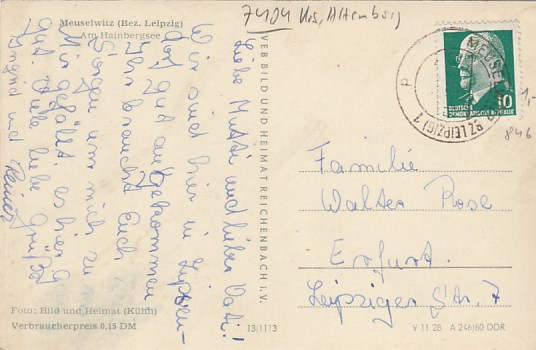 Meuselwitz (Bez. Leipzig)
Am Hainbergsee
7404 Krs. Altenburg
Liebe Mutti und lieber Vati!
Wir sind hier in
dorf gut angekommen
Ihr braucht Euch
Sorgen um mich zu
Mir gefällt es hier
gut. Viele liebe Grüße
Ingrid und
VEB BILD UND HEIMAT REICHENBACH i. V.
MEUSEL
(BZ LEIPZIG) 1
p
DEUTSCHE
DEMOKRATISCHE REPUBLIK
10
1,-
846
Familie
Walter Rose
Erfurt
Leipziger Str. 7
Foto: Bild und Heimat (Kühn)
Verbraucherpreis 0,15 DM
13/1113
V 11 28 A 246/60 DDR